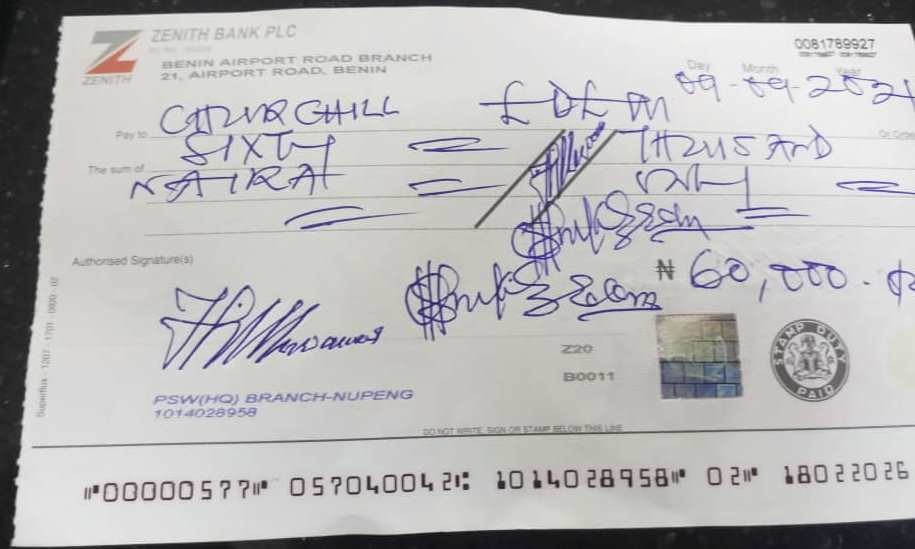 ZENITH BANK PLC
ZENITH
BENIN AIRPORT ROAD BRANCH
21, AIRPORT ROAD, BENIN
0081789927
Day Month Year
09-09-202
Pay to CHURCHILL
Or Order
SIXTY THOUSAND
The sum of NAIRA ONLY
Authorised Signature(s)
₦ 60,000.
Z20
B0011
STAMP DUTY
PAID
PSW(HQ) BRANCH-NUPENG
1014028958
DO NOT WRITE, SIGN OR STAMP BELOW THIS LINE
Superflux - 1207 - 1701 - 0920 - 02
⑈00000577⑈ 057040042⑆ 1014028958⑈ 02⑈ 18022026